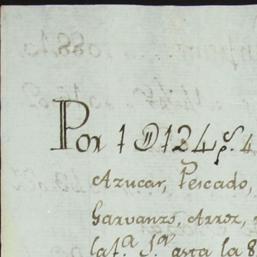 Por 1 D 124 p.s 4
Azucar, Pescado,
Garvanzo, Arroz,
asta la 8